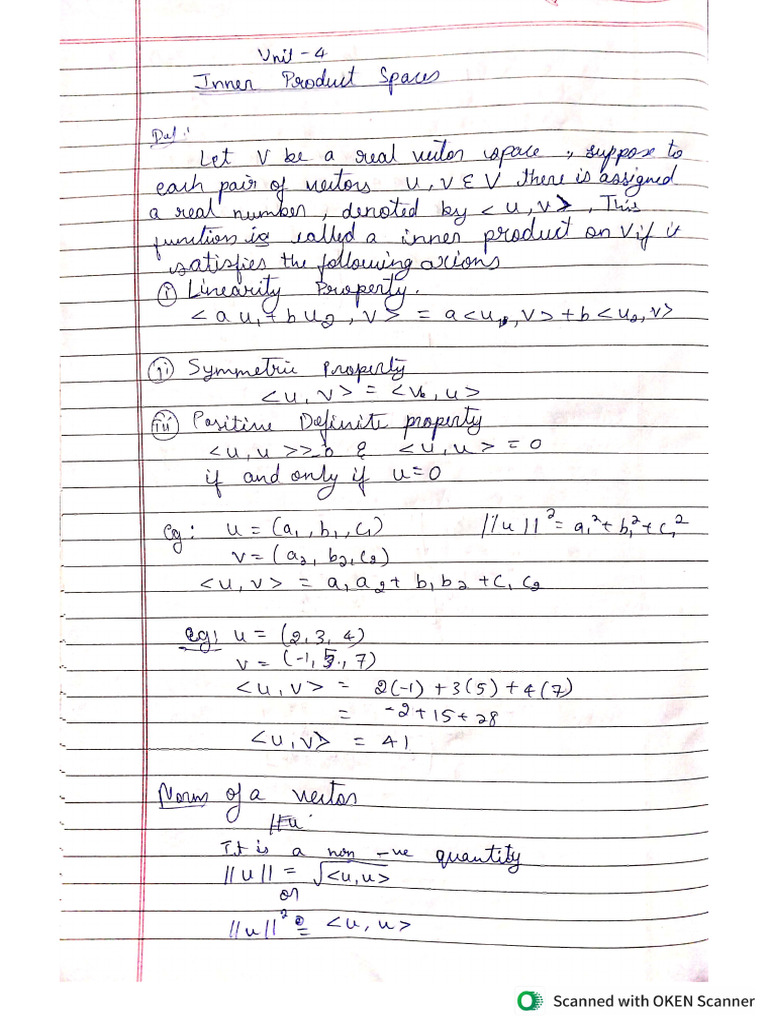 Unit - 4
Inner Product Spaces
Def :
Let V be a real vector space, suppose to
each pair of vectors u, v ε V there is assigned
a real number, denoted by < u, v >, This
function is called a inner product on V if it
satisfies the following axions
(i) Linearity Property.
< a u₁ + b u₂ , v > = a <u₁, v> + b <u₂, v>
(ii) Symmetric Property
< u, v > = < v, u >
(iii) Positive Definite property
< u, u > ≥ 0 & < u, u > = 0
if and only if u = 0
eg : u = (a₁, b₁, c₁) ||u||² = a₁² + b₁² + c₁²
v = (a₂, b₂, c₂)
< u, v > = a₁ a₂ + b₁ b₂ + c₁ c₂
eg : u = (2, 3, 4)
v = (-1, 5, 7)
< u, v > = 2(-1) + 3(5) + 4(7)
= -2 + 15 + 28
< u, v > = 41
Norm of a vector
It is a non -ve quantity
||u|| = √<u, u>
or
||u||² = < u, u >
Scanned with OKEN Scanner